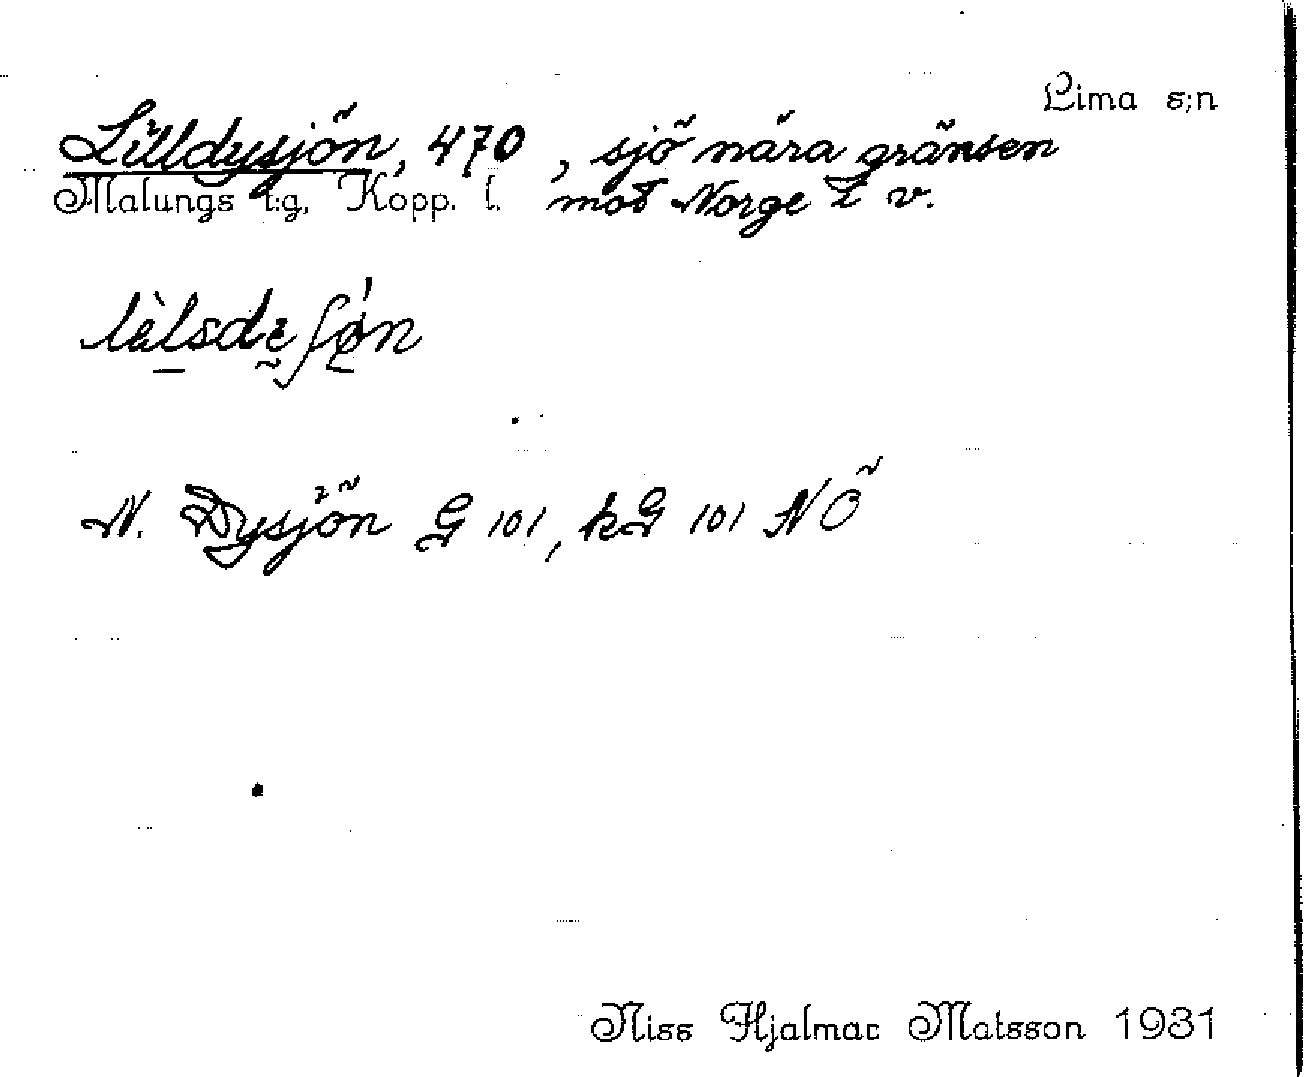 Lima s:n
Lilldysjön, 470, sjö nära gränsen
Malungs t:g, Kopp. l. mot Norge t v.
N. Dysjön G 101, kG 101 NÖ
Niss Hjalmar Matsson 1931